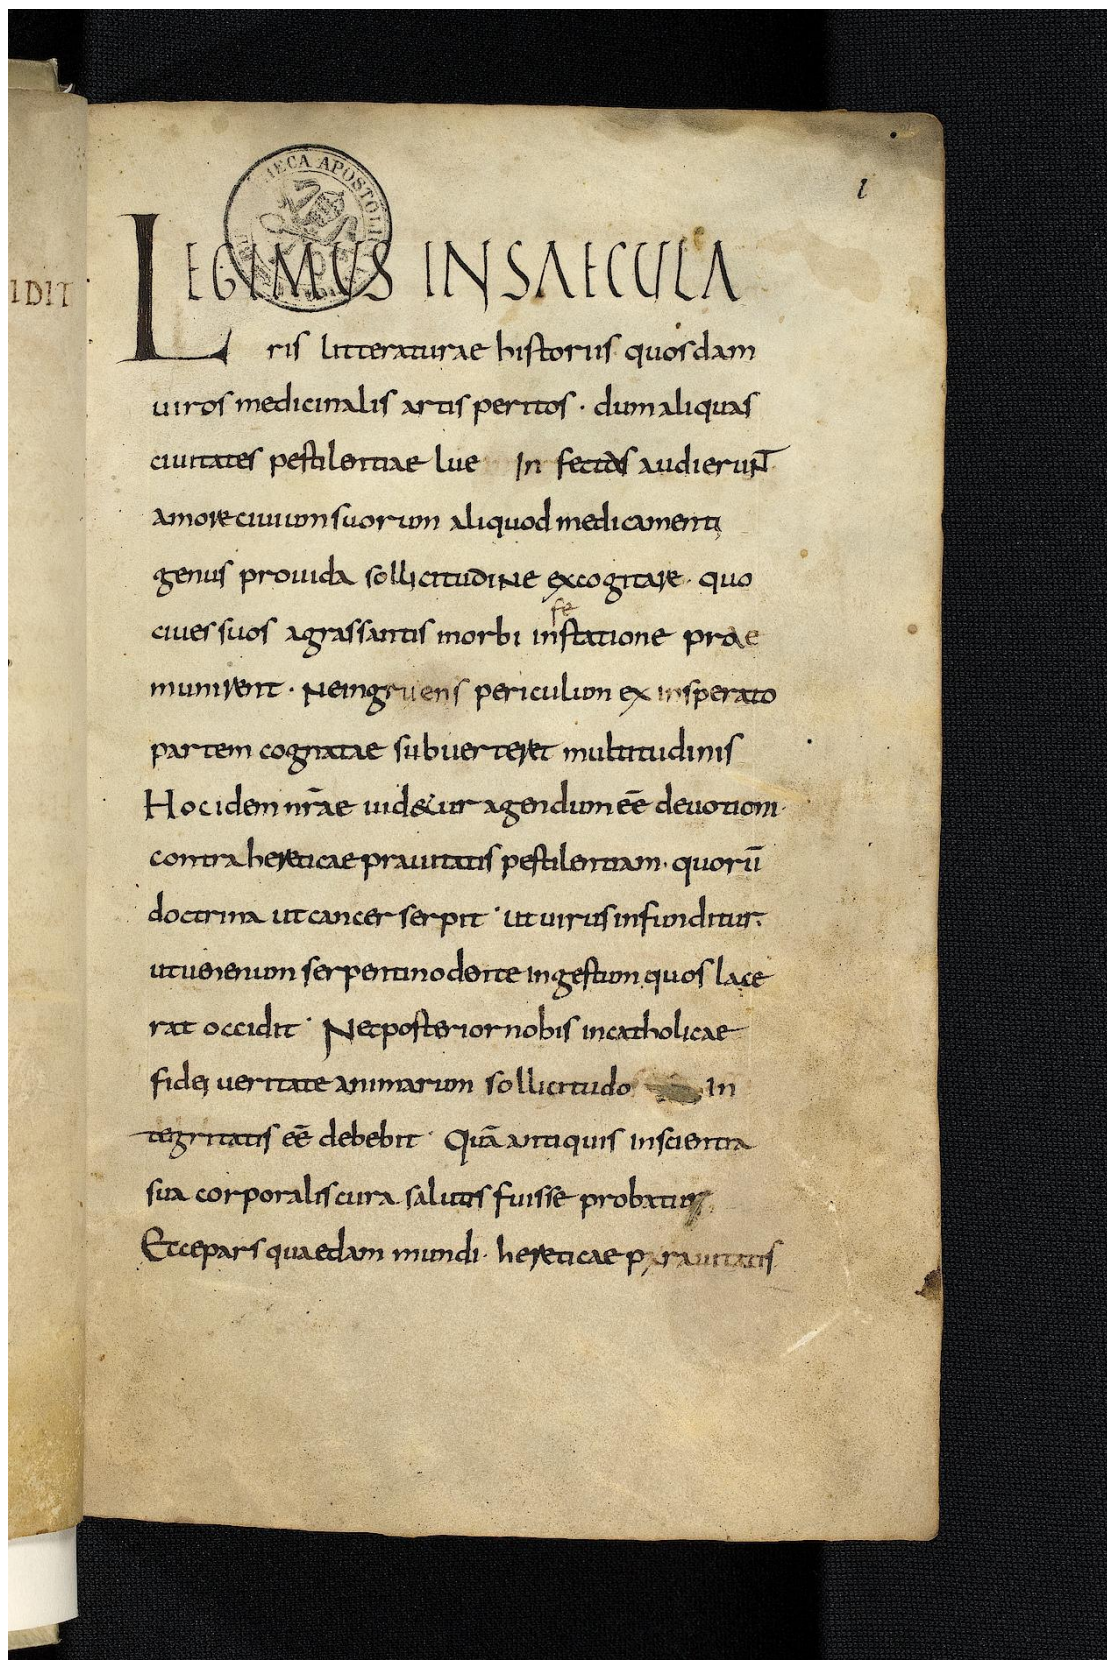 IDIT
1
LEGIMUS IN SAECULA
ris litteraturae historiis quosdam
uiros medicinalis artis peritos · dum aliquas
ciuitates pestilentiae lue In fectas audierunt
amore ciuium suorum aliquod medicamenti
genus prouida sollicitudine excogitare · quo
fe
ciues suos agrassantis morbi instatione prae
munirent · Ne ingruens periculum ex insperato
partem cognatae subuerteret multitudinis
Hoc idem nr̄ae uidetur agendum eē deuotioni ·
contra hereticae prauitatis pestilentiam · quorū
doctrina ut cancer serpit · ut uirus infunditur ·
ut uenenum serpentino dente ingestum quos lace
rat occidit · Nec posterior nobis in catholicae
fidei ueritate animarum sollicitudo In
tegritatis eē debebit · Quā antiquis in scientia
sua corporalis cura salutis fuisse probatur
Et cepars quaedam mundi · hereticae prauitatis